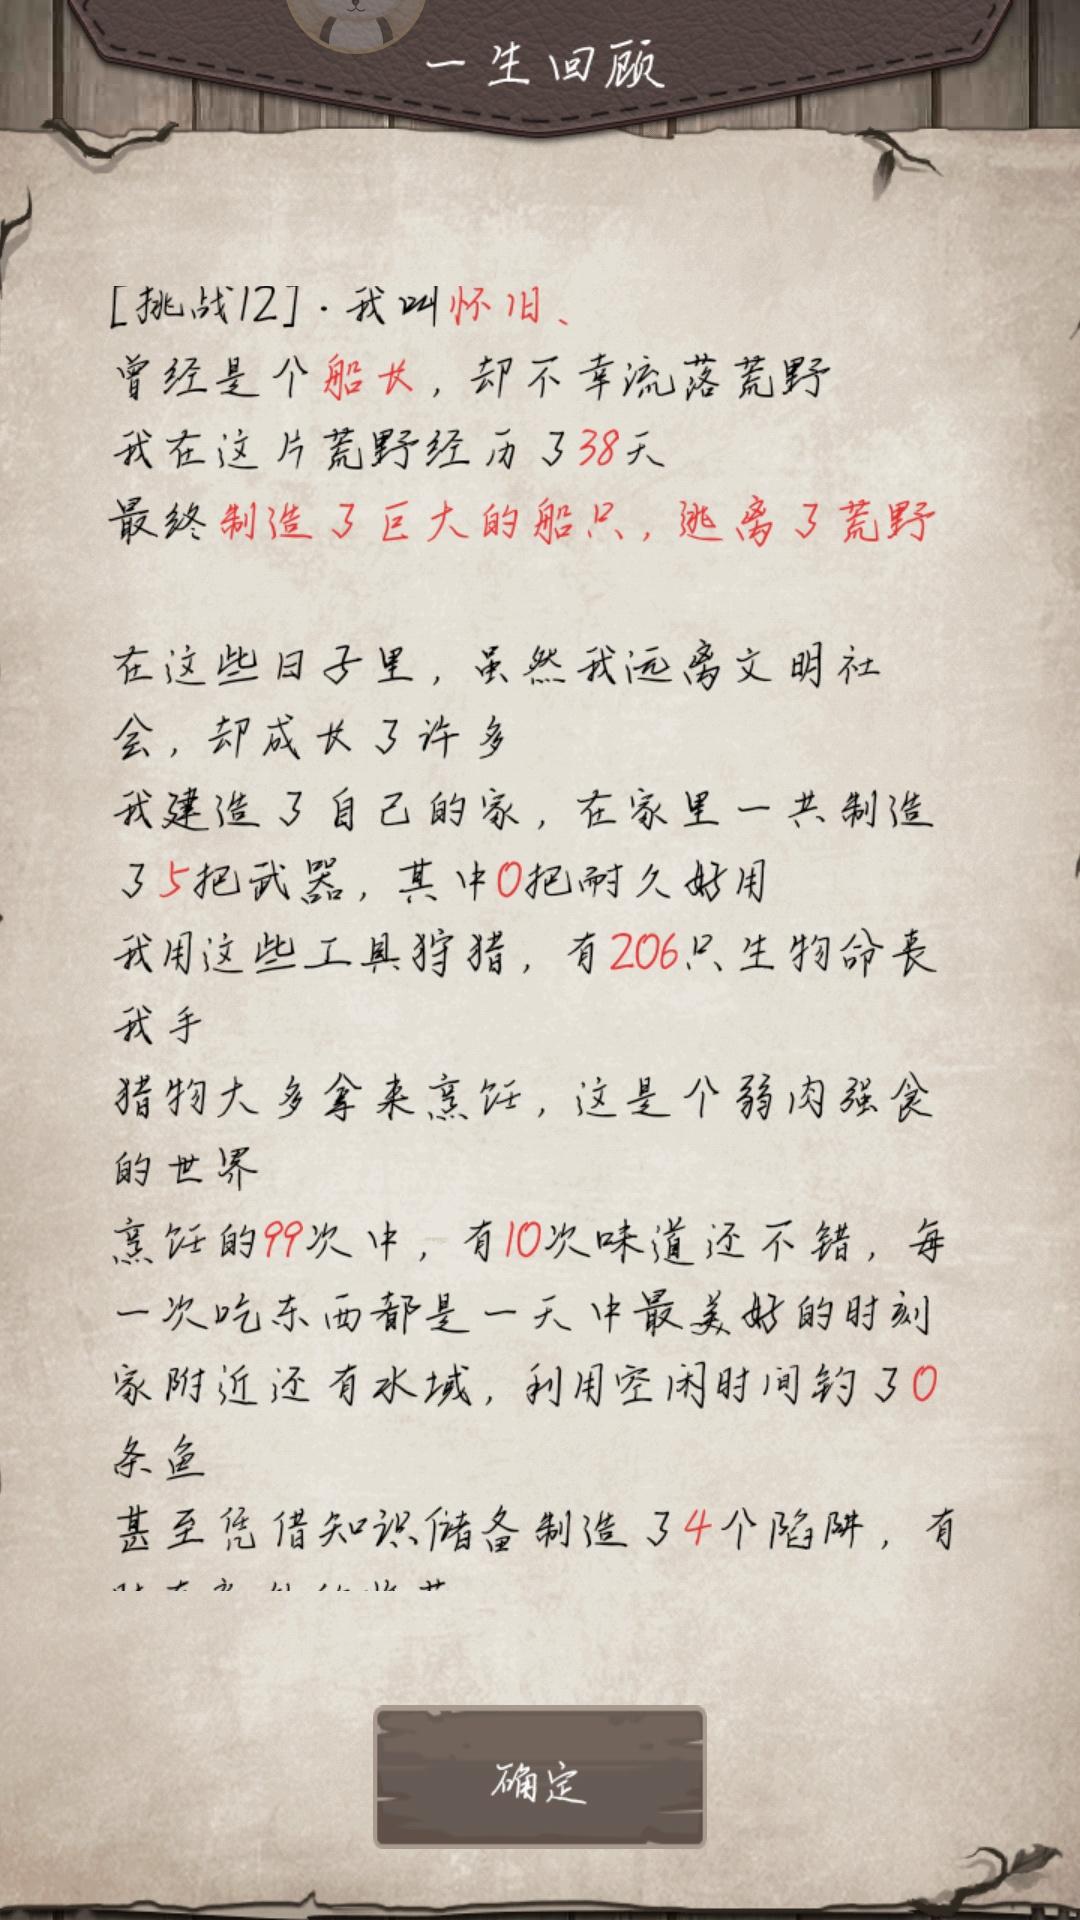 一生回顾
[挑战12]·我叫怀旧、
曾经是个船长，却不幸流落荒野
我在这片荒野经历了38天
最终制造了巨大的船只，逃离了荒野
在这些日子里，虽然我远离文明社
会，却成长了许多
我建造了自己的家，在家里一共制造
了5把武器，其中0把耐久好用
我用这些工具狩猎，有206只生物命丧
我手
猎物大多拿来烹饪，这是个弱肉强食
的世界
烹饪的99次中，有10次味道还不错，每
一次吃东西都是一天中最美好的时刻
家附近还有水域，利用空闲时间钓了0
条鱼
甚至凭借知识储备制造了4个陷阱，有
确定